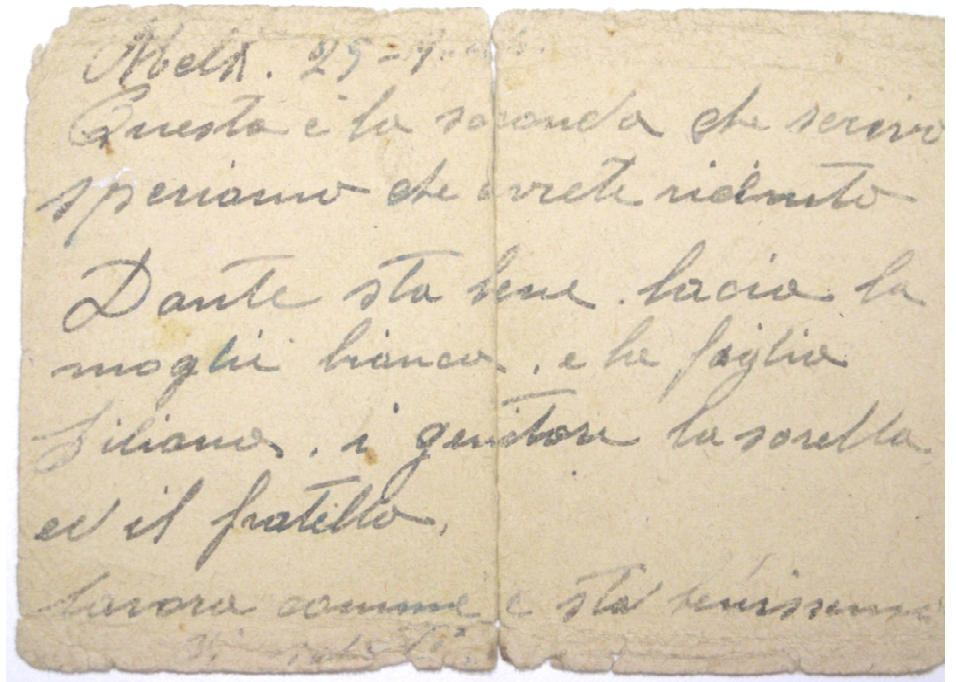 25-
Questa è la seconda che scrivo
speriamo che avrete ricevuto
Dante sta bene. bacia la
moglie bianca, e la figlia
Liliana, i genitori la sorella
ed il fratello,
Lavora comme e sta benissimo